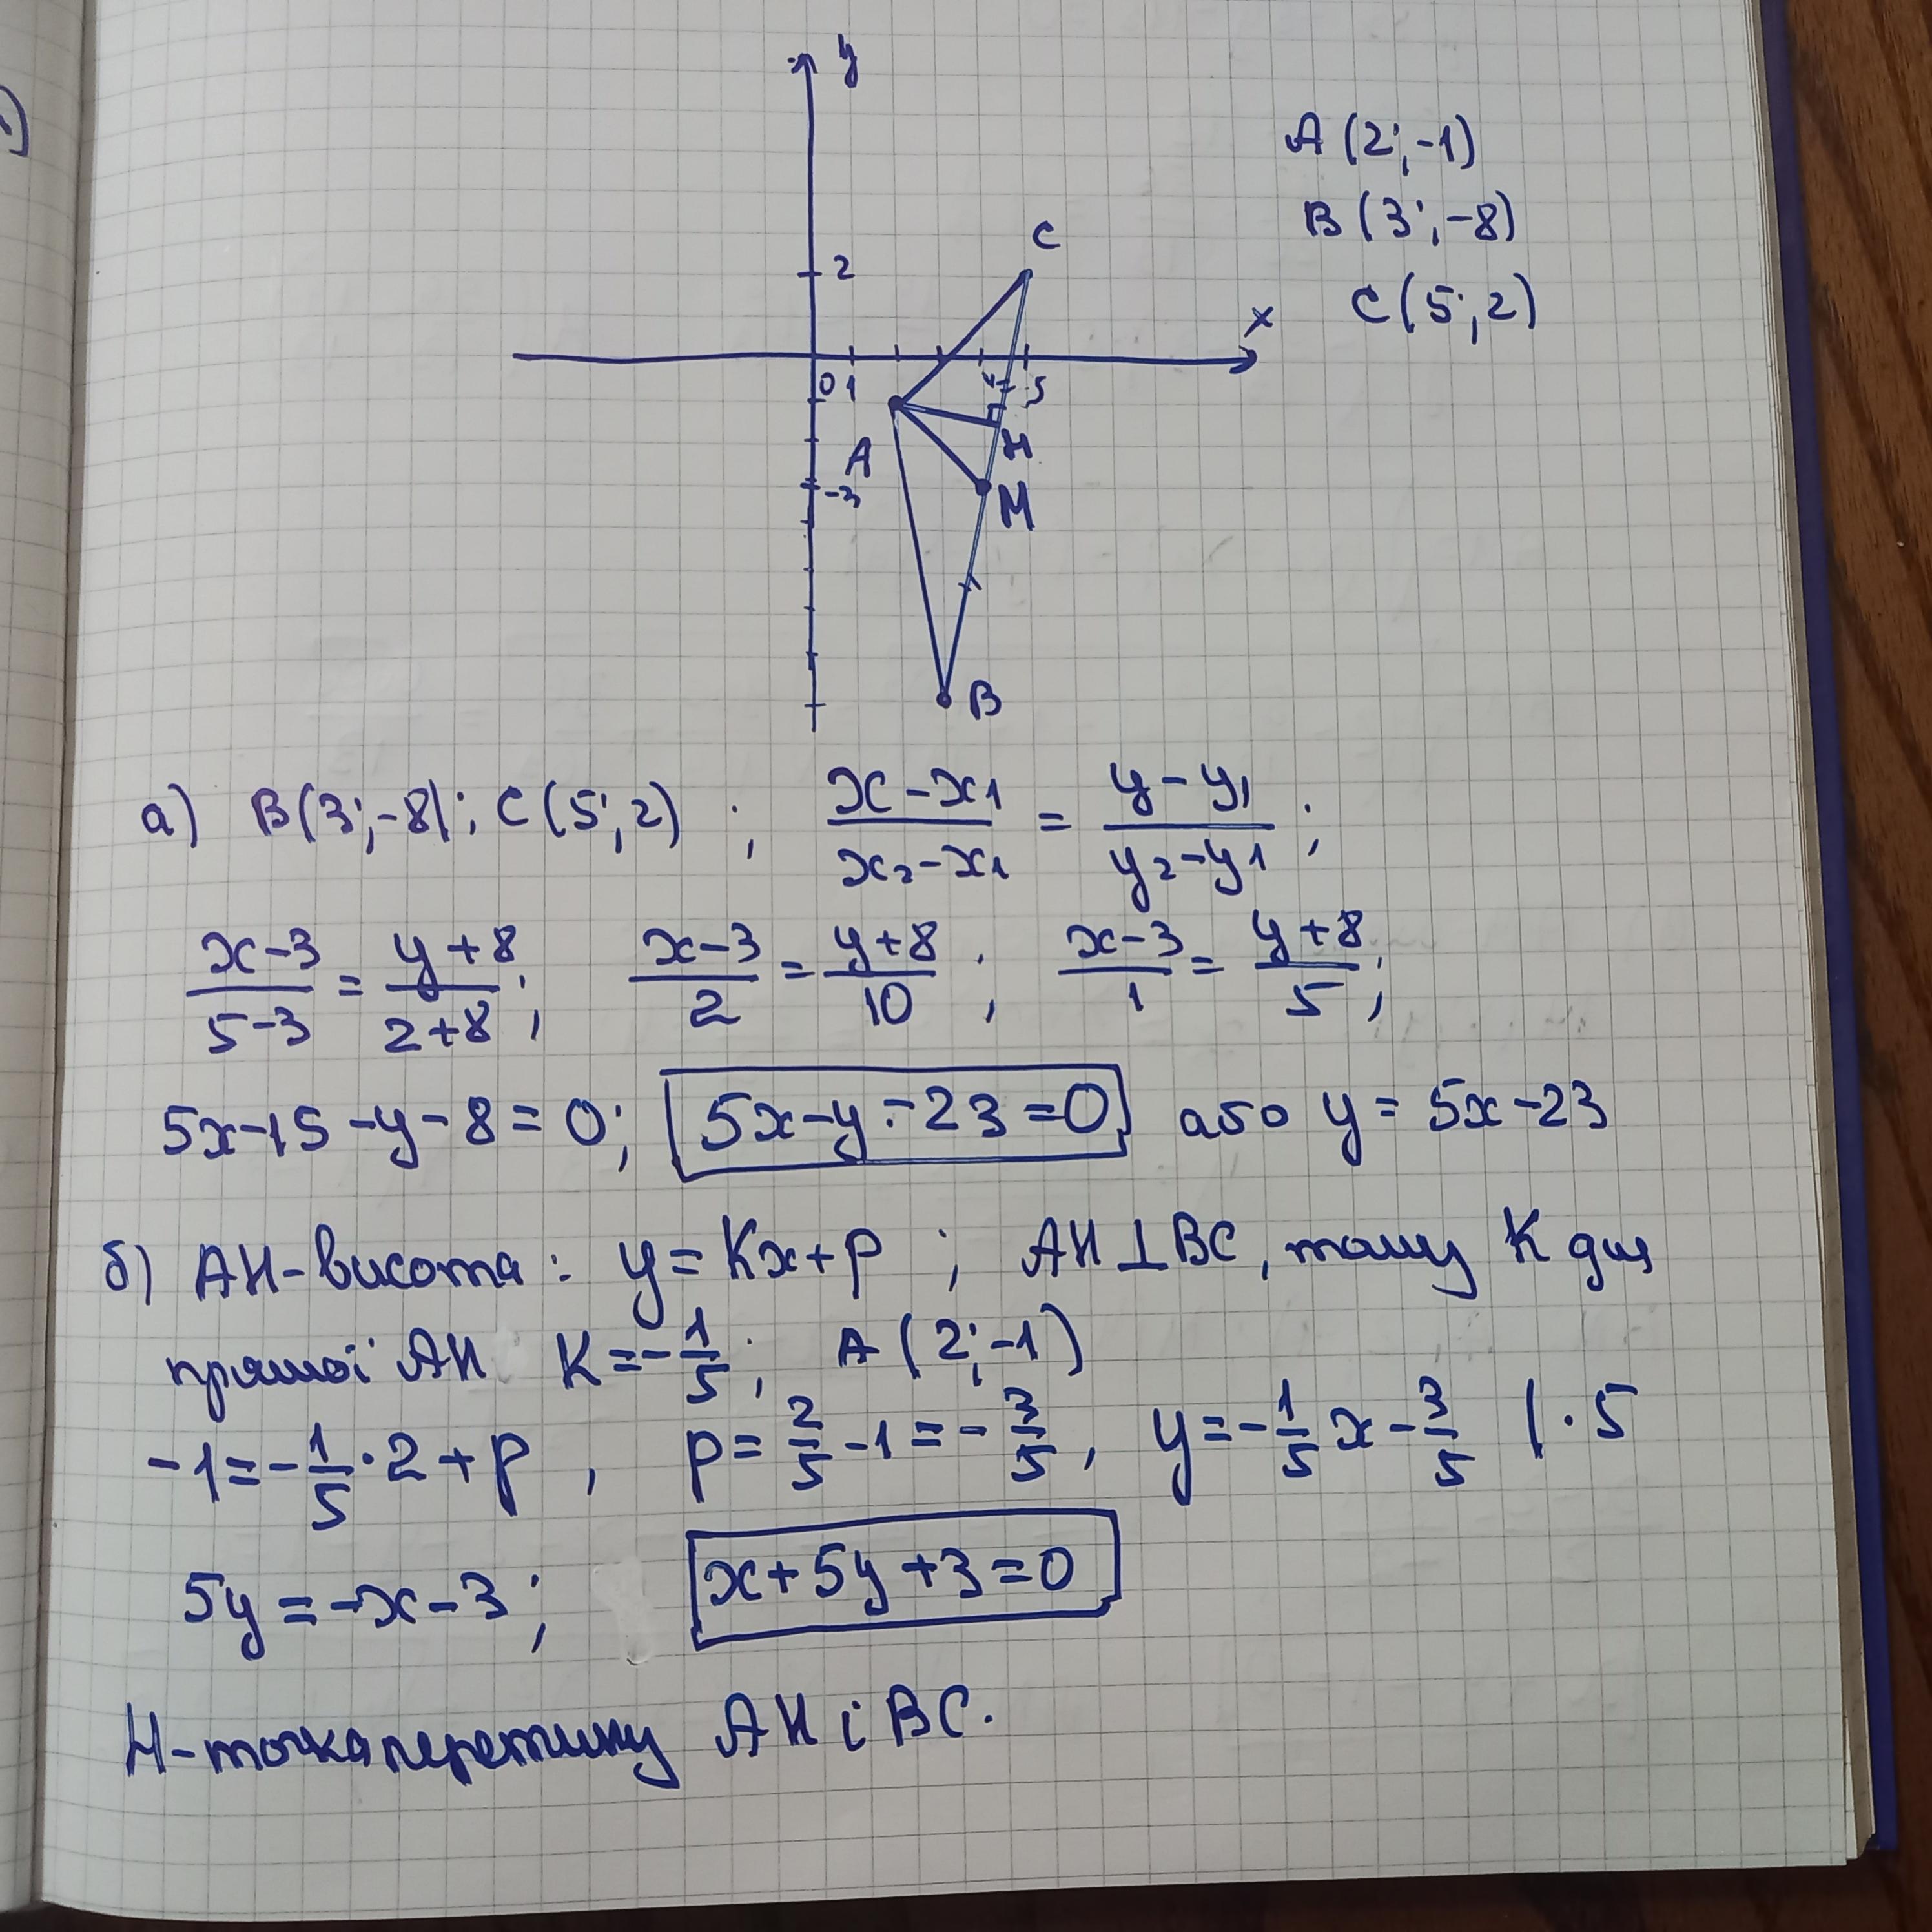 y
A (2; -1)
B (3; -8)
C (5; 2)
C
2
x
0 1 4 5
A
H
-3
M
B
а) B(3; -8); C(5; 2) ; (x - x₁)/(x₂ - x₁) = (y - y₁)/(y₂ - y₁) ;
(x-3)/(5-3) = (y+8)/(2+8) ; (x-3)/2 = (y+8)/10 ; (x-3)/1 = (y+8)/5 ;
5x-15 -y-8 = 0; 5x-y-23=0 або y = 5x-23
б) AH-висота: y = Kx+p ; AH⊥BC, тому K для
прямої AH K=-1/5 ; A (2; -1)
-1=-1/5·2+p , p = 2/5 - 1 = - 3/5 , y = -1/5 x - 3/5 | · 5
5y = -x-3 ; x+5y+3=0
H-точка перетину AH і BC.